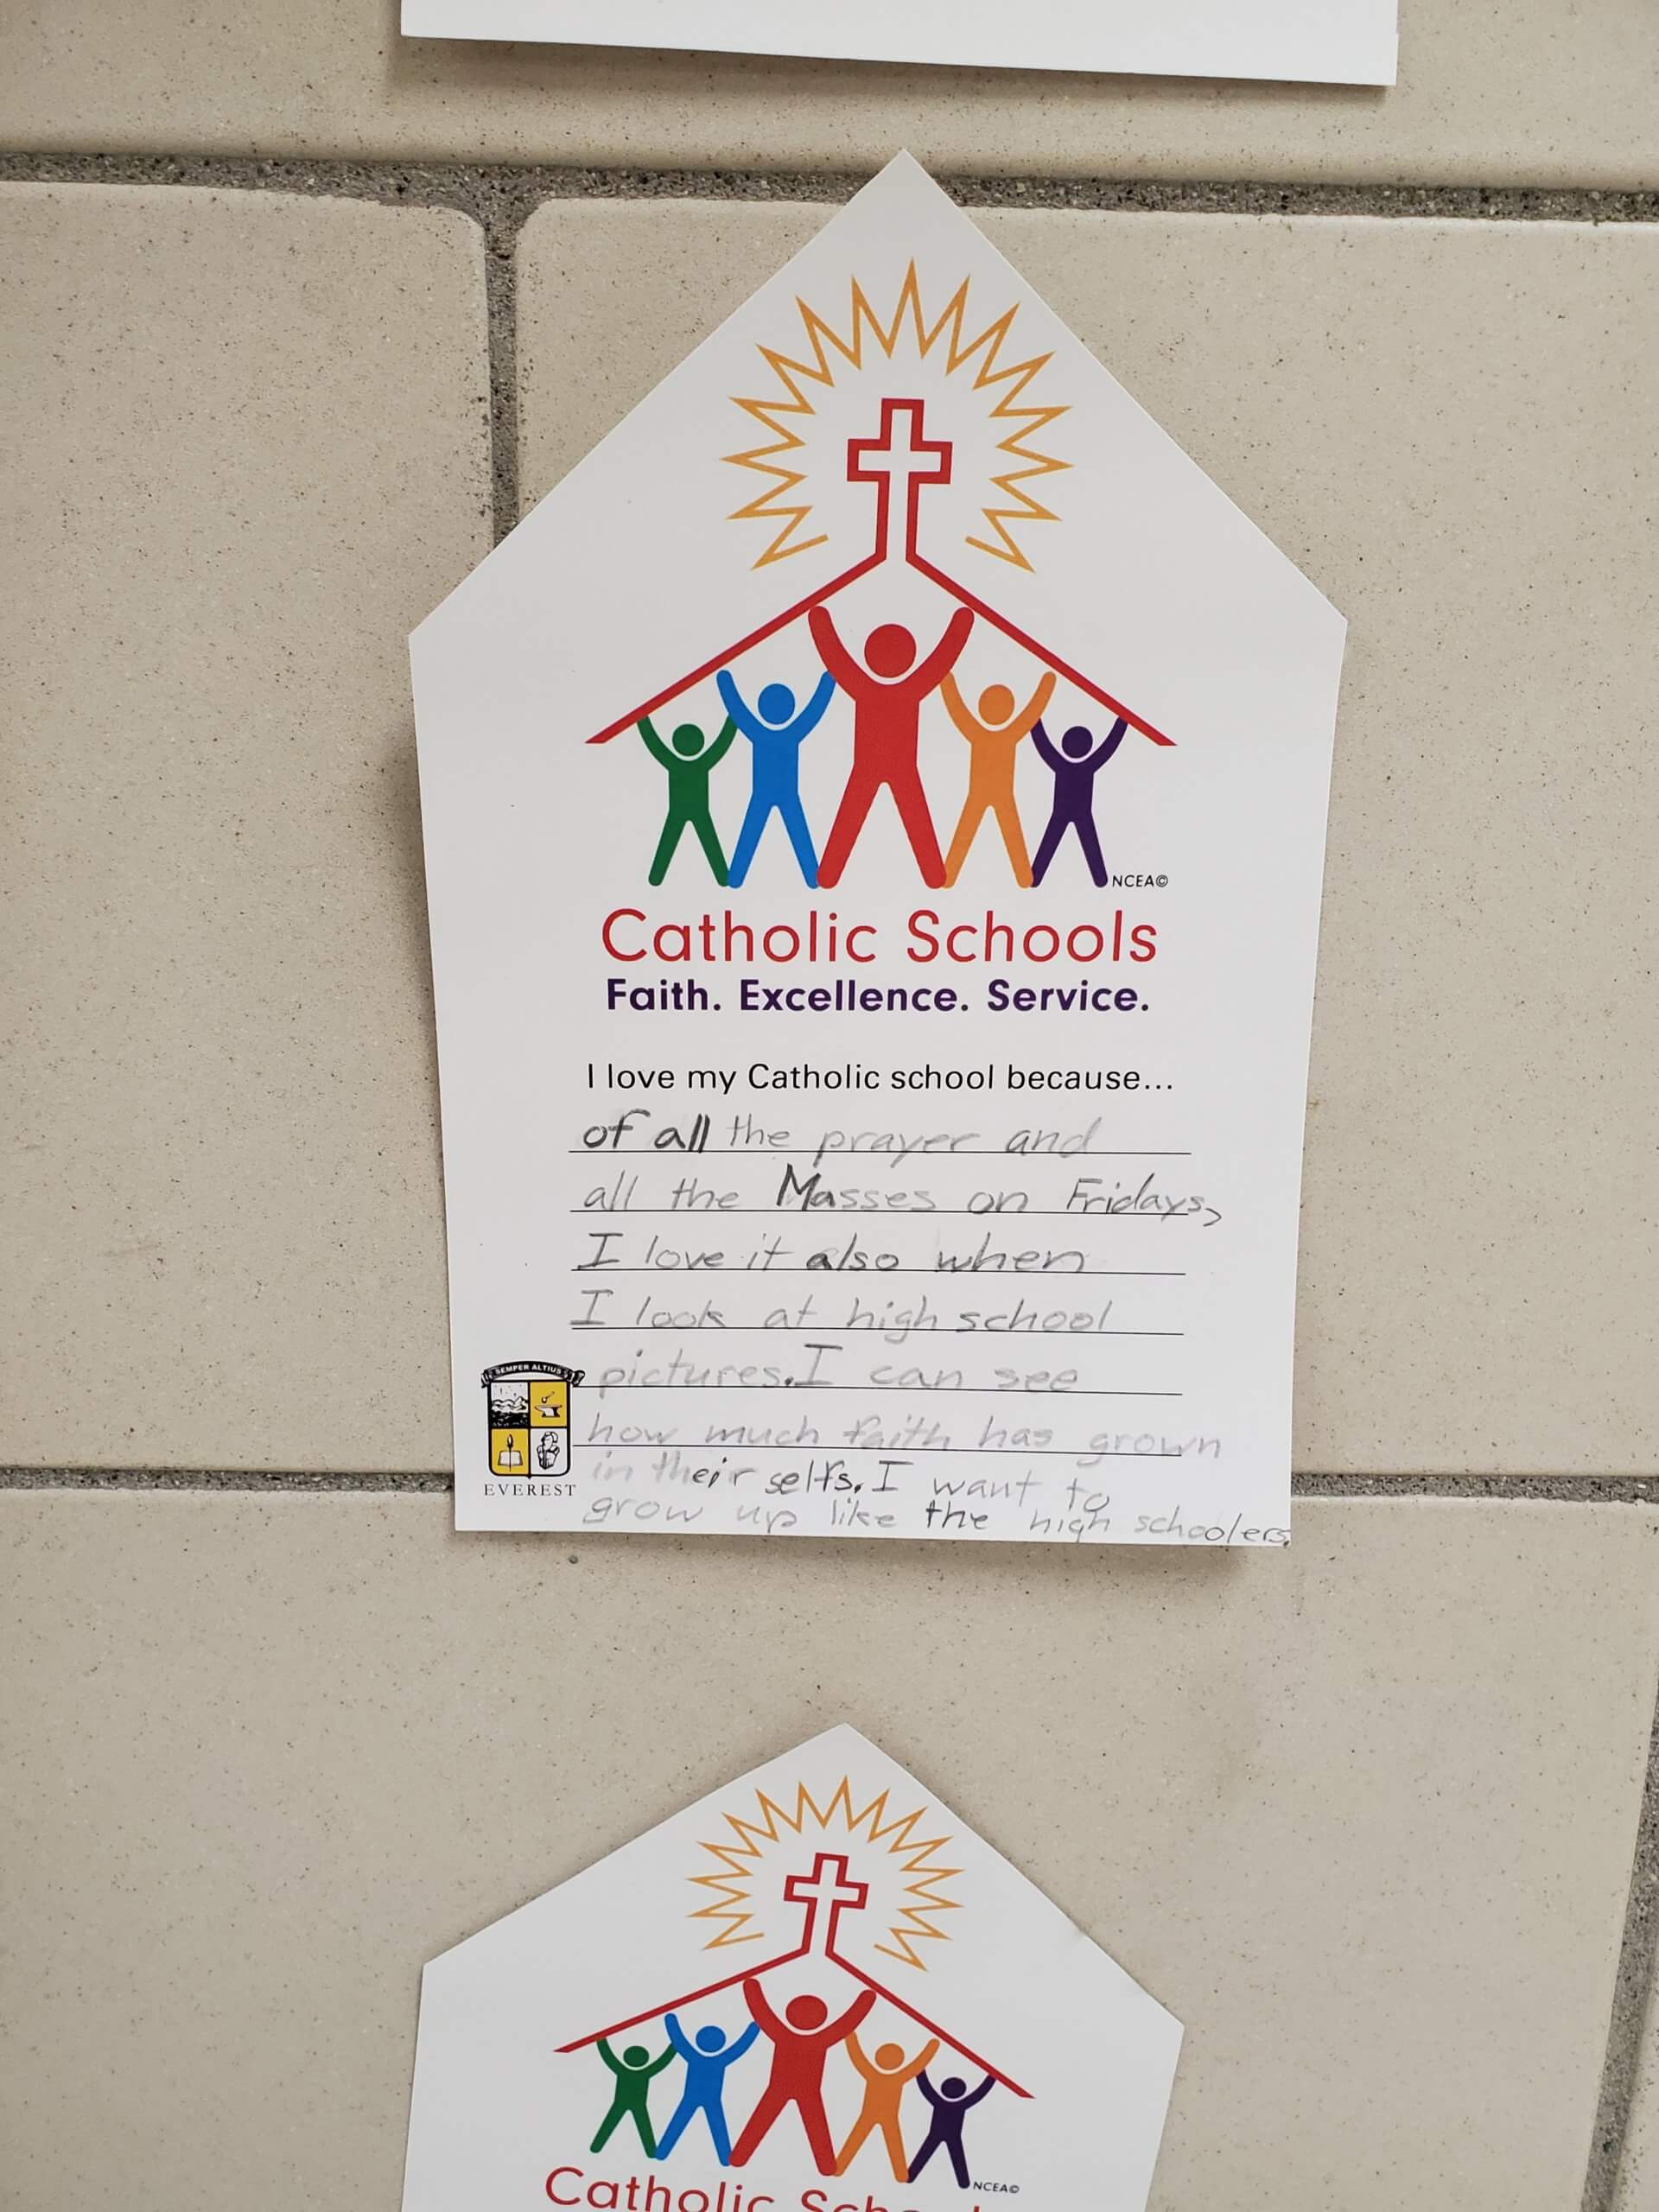 NCEA©
Catholic Schools
Faith. Excellence. Service.
I love my Catholic school because...
of all the prayer and
all the Masses on Fridays,
I love it also when
I look at high school
pictures. I can see
how much faith has grown
in their selfs. I want to
grow up like the high schoolers.
SEMPER ALTIUS
EVEREST
NCEA©
Catholic